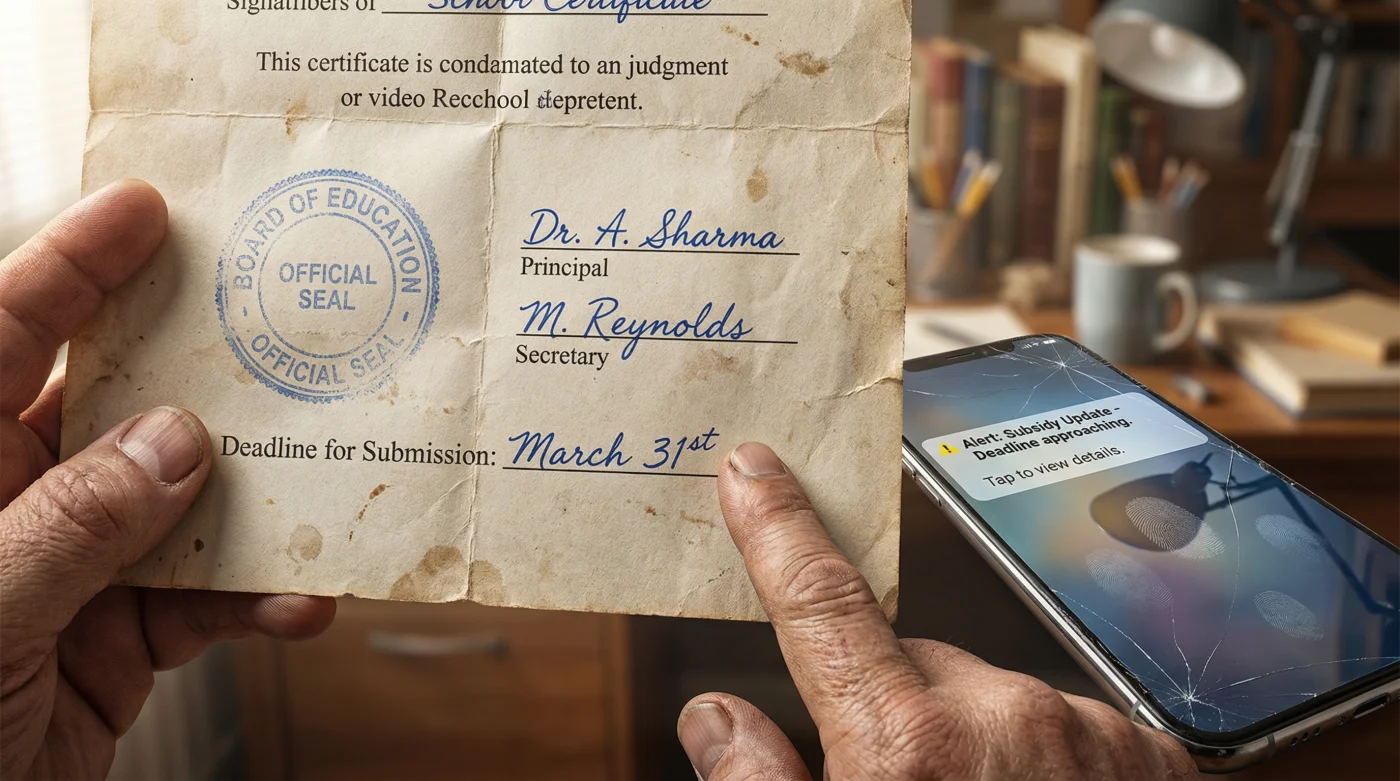 Signatfibers of School Certificate
This certificate is condamated to an judgment
or video Recchool depretent.
BOARD OF EDUCATION
OFFICIAL
SEAL
- OFFICIAL SEAL -
Dr. A. Sharma
Principal
M. Reynolds
Secretary
Deadline for Submission: March 31st
Alert: Subsidy Update -
Deadline approaching.
Tap to view details.